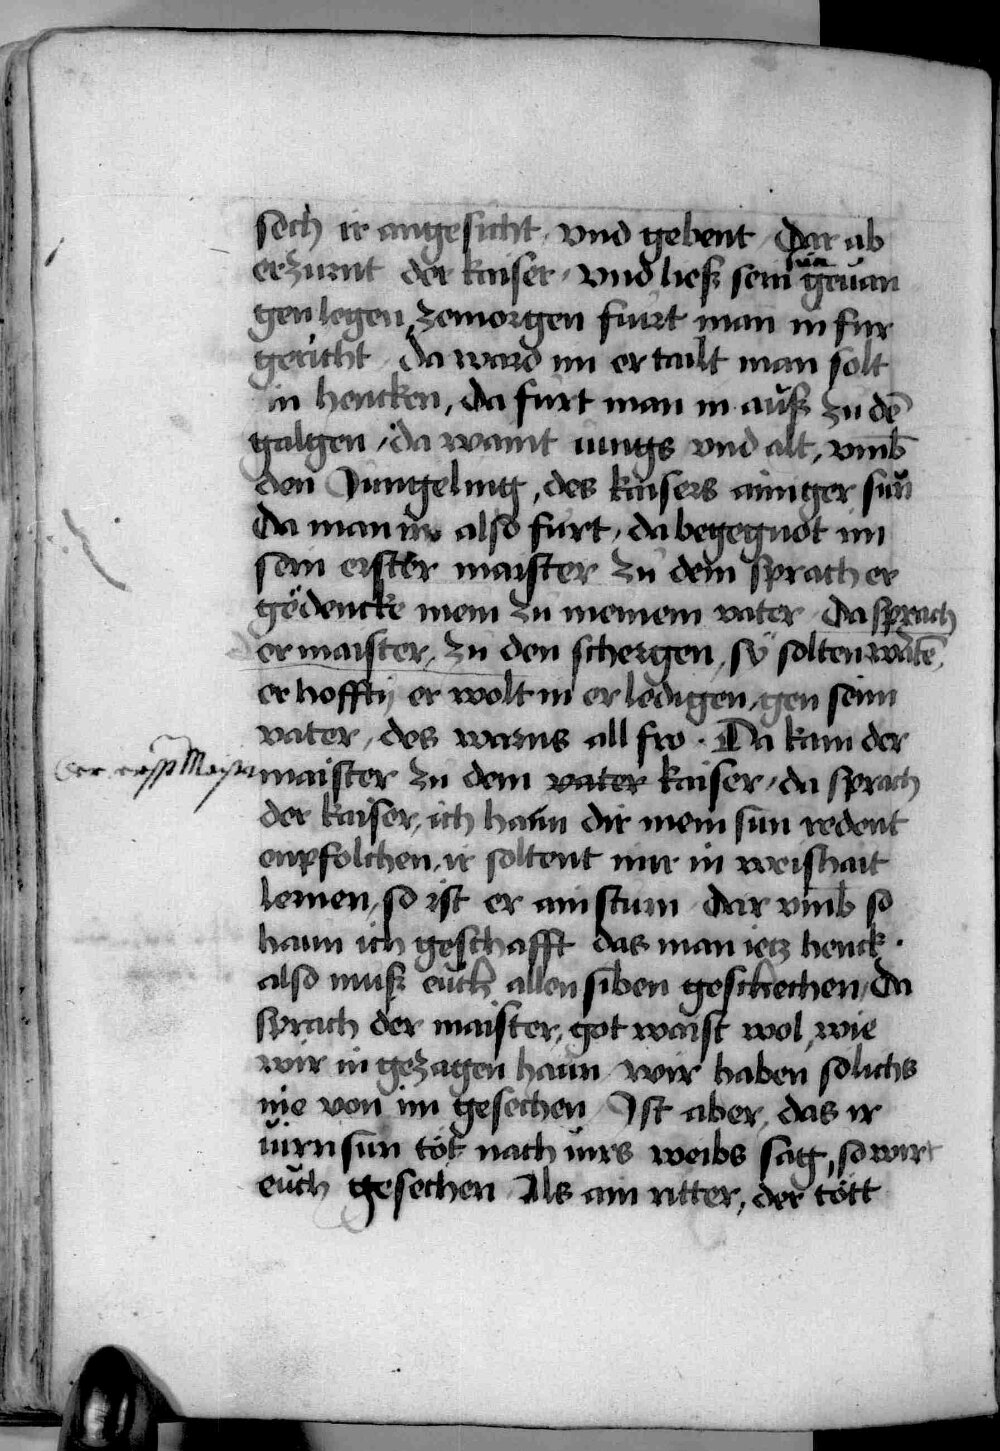 sech ir angesicht / vnd gebent / Dar ab
erzurnt der kaiser / vnd ließ sein sun geuan
gen legen / zemorgen furt man in fur
gericht / da ward im er tailt man solt
in hencken / da furt man in auß zu dē
galgen / da waint iungs vnd alt / vmb
den Jungeling / des kaisers ainiger sun
Da man in also furt / da begegnot im
sein erster maister zu dem sprach er
gedencke mein zu meinem vater / Da sprach
der maister / zu den schergen / sy solten waitē
er hoffty er wolt in er ledigen / gen seim
vater / des warns all fro · Da kam der
Der erst Maister
maister zu dem vater kaiser / da sprach
der kaiser / ich haun dir mein sun redent
enpfolchen / ir soltent mir in weishait
lernen / so ist er ain stum dar vmb so
haun ich geschafft das man ietz henck ·
also muß euch allen siben geschechen / Da
sprach der maister / got waist wol / wie
wir in gezagen haun wir haben solichs
nie von im gesechen / Ist aber / das ir
uirn sun tot nach uirs weibs sag / so wirt
euch gesechen Als ain ritter / der tött